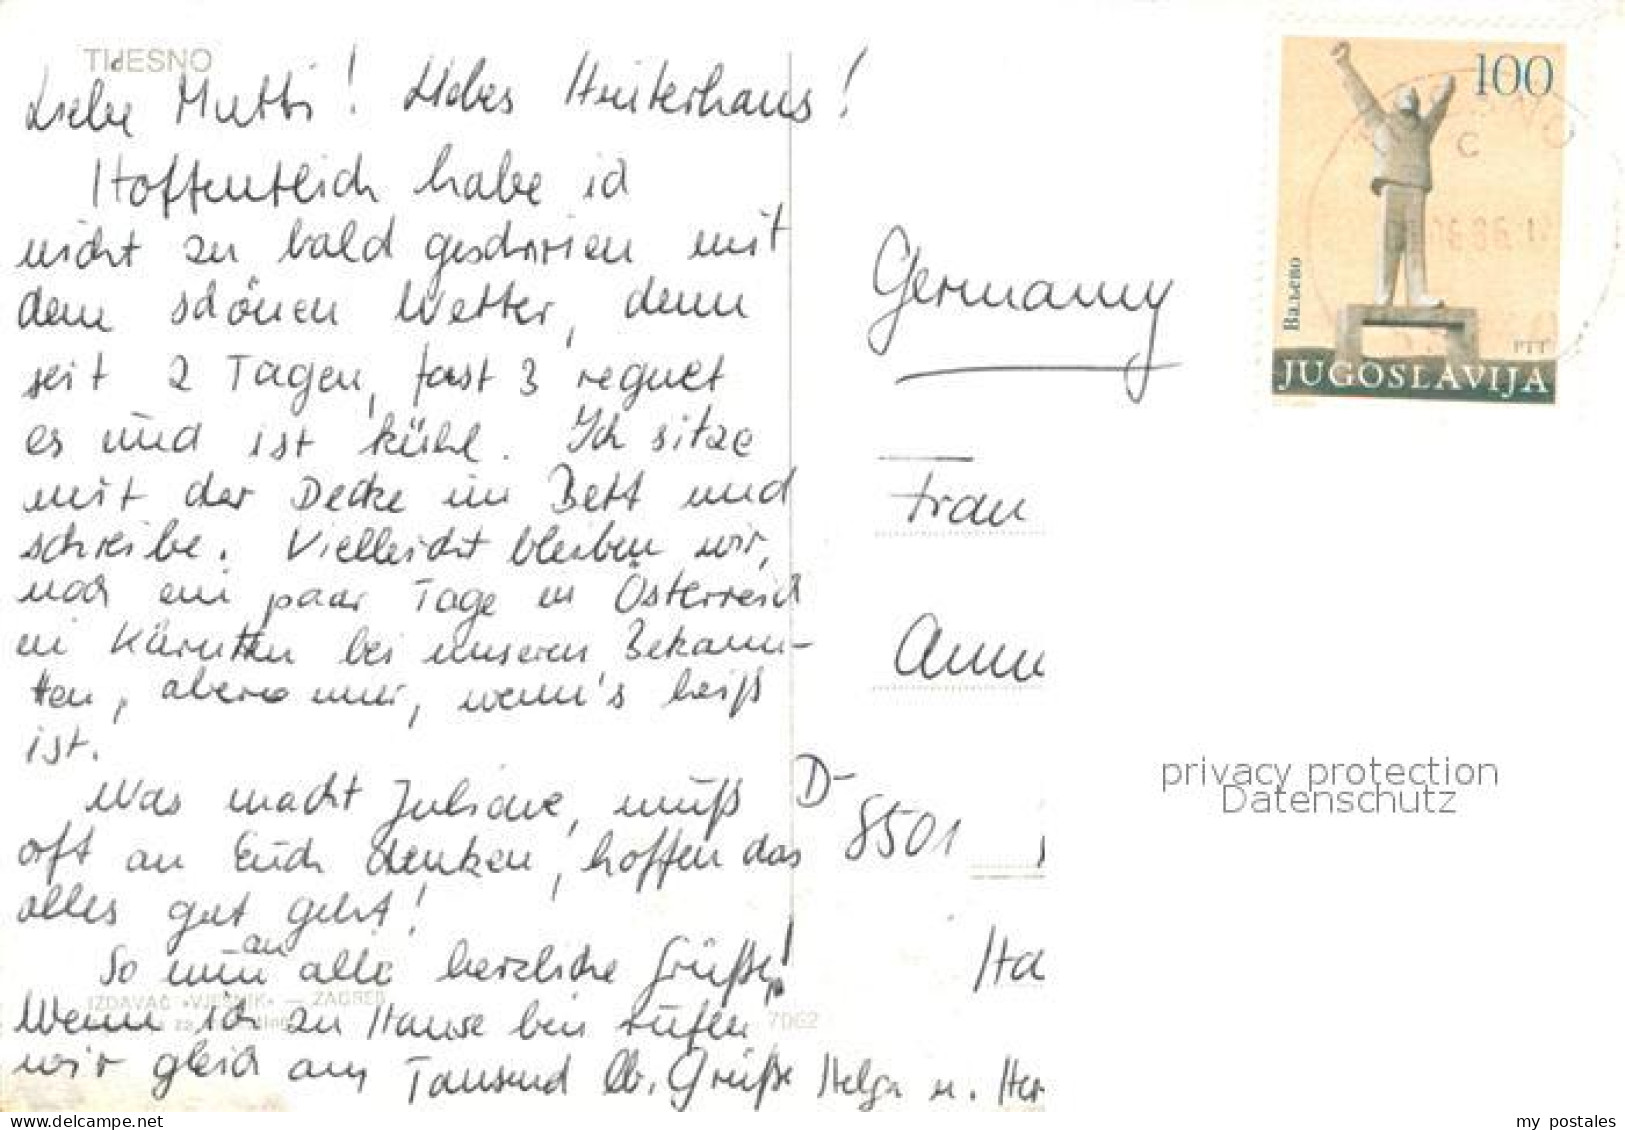 TIJESNO
Liebe Mutti! Liebes Hinterhaus!
Hoffentlich habe ich
nicht zu bald geschrieen mit
dem schönen Wetter, denn
seit 2 Tagen, fast 3 regnet
es und ist kühl. Ich sitze
mit der Decke im Bett und
schreibe. Vielleicht bleiben wir,
noch ein paar Tage in Österreich
in Kärnten bei unseren Bekann-
ten, aber nur, wenn's heiß
ist.
Was macht Juliane, muß
oft an Euch denken, hoffen das
alles gut geht!
So nun an alle herzliche Grüße!
Wenn ich zu Hause bin rufen
wir gleich an, Tausend lb. Grüße Helga u. Her
IZDAVAČ »VJESNIK« — ZAGREB
7062
Germany
Frau
Anna
D-
8501
Ha
100
Ваљево
PTT
JUGOSLAVIJA
privacy protection
Datenschutz
my postales